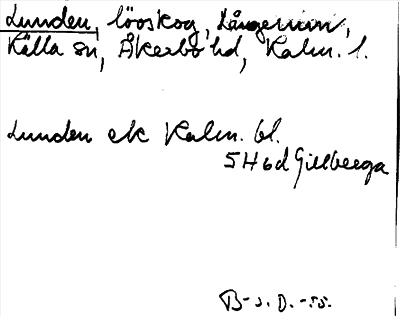 Lunden, lövskog, Långerum,
Källa sn, Åkerbo hd, Kalm. l.
Lunden ek Kalm. bl.
5H6d Gillberga
B-s. D. -55.